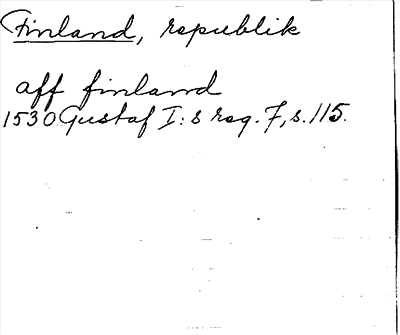 Finland, republik
aff finland
1530 Gustaf I:s reg. 7, s. 115.